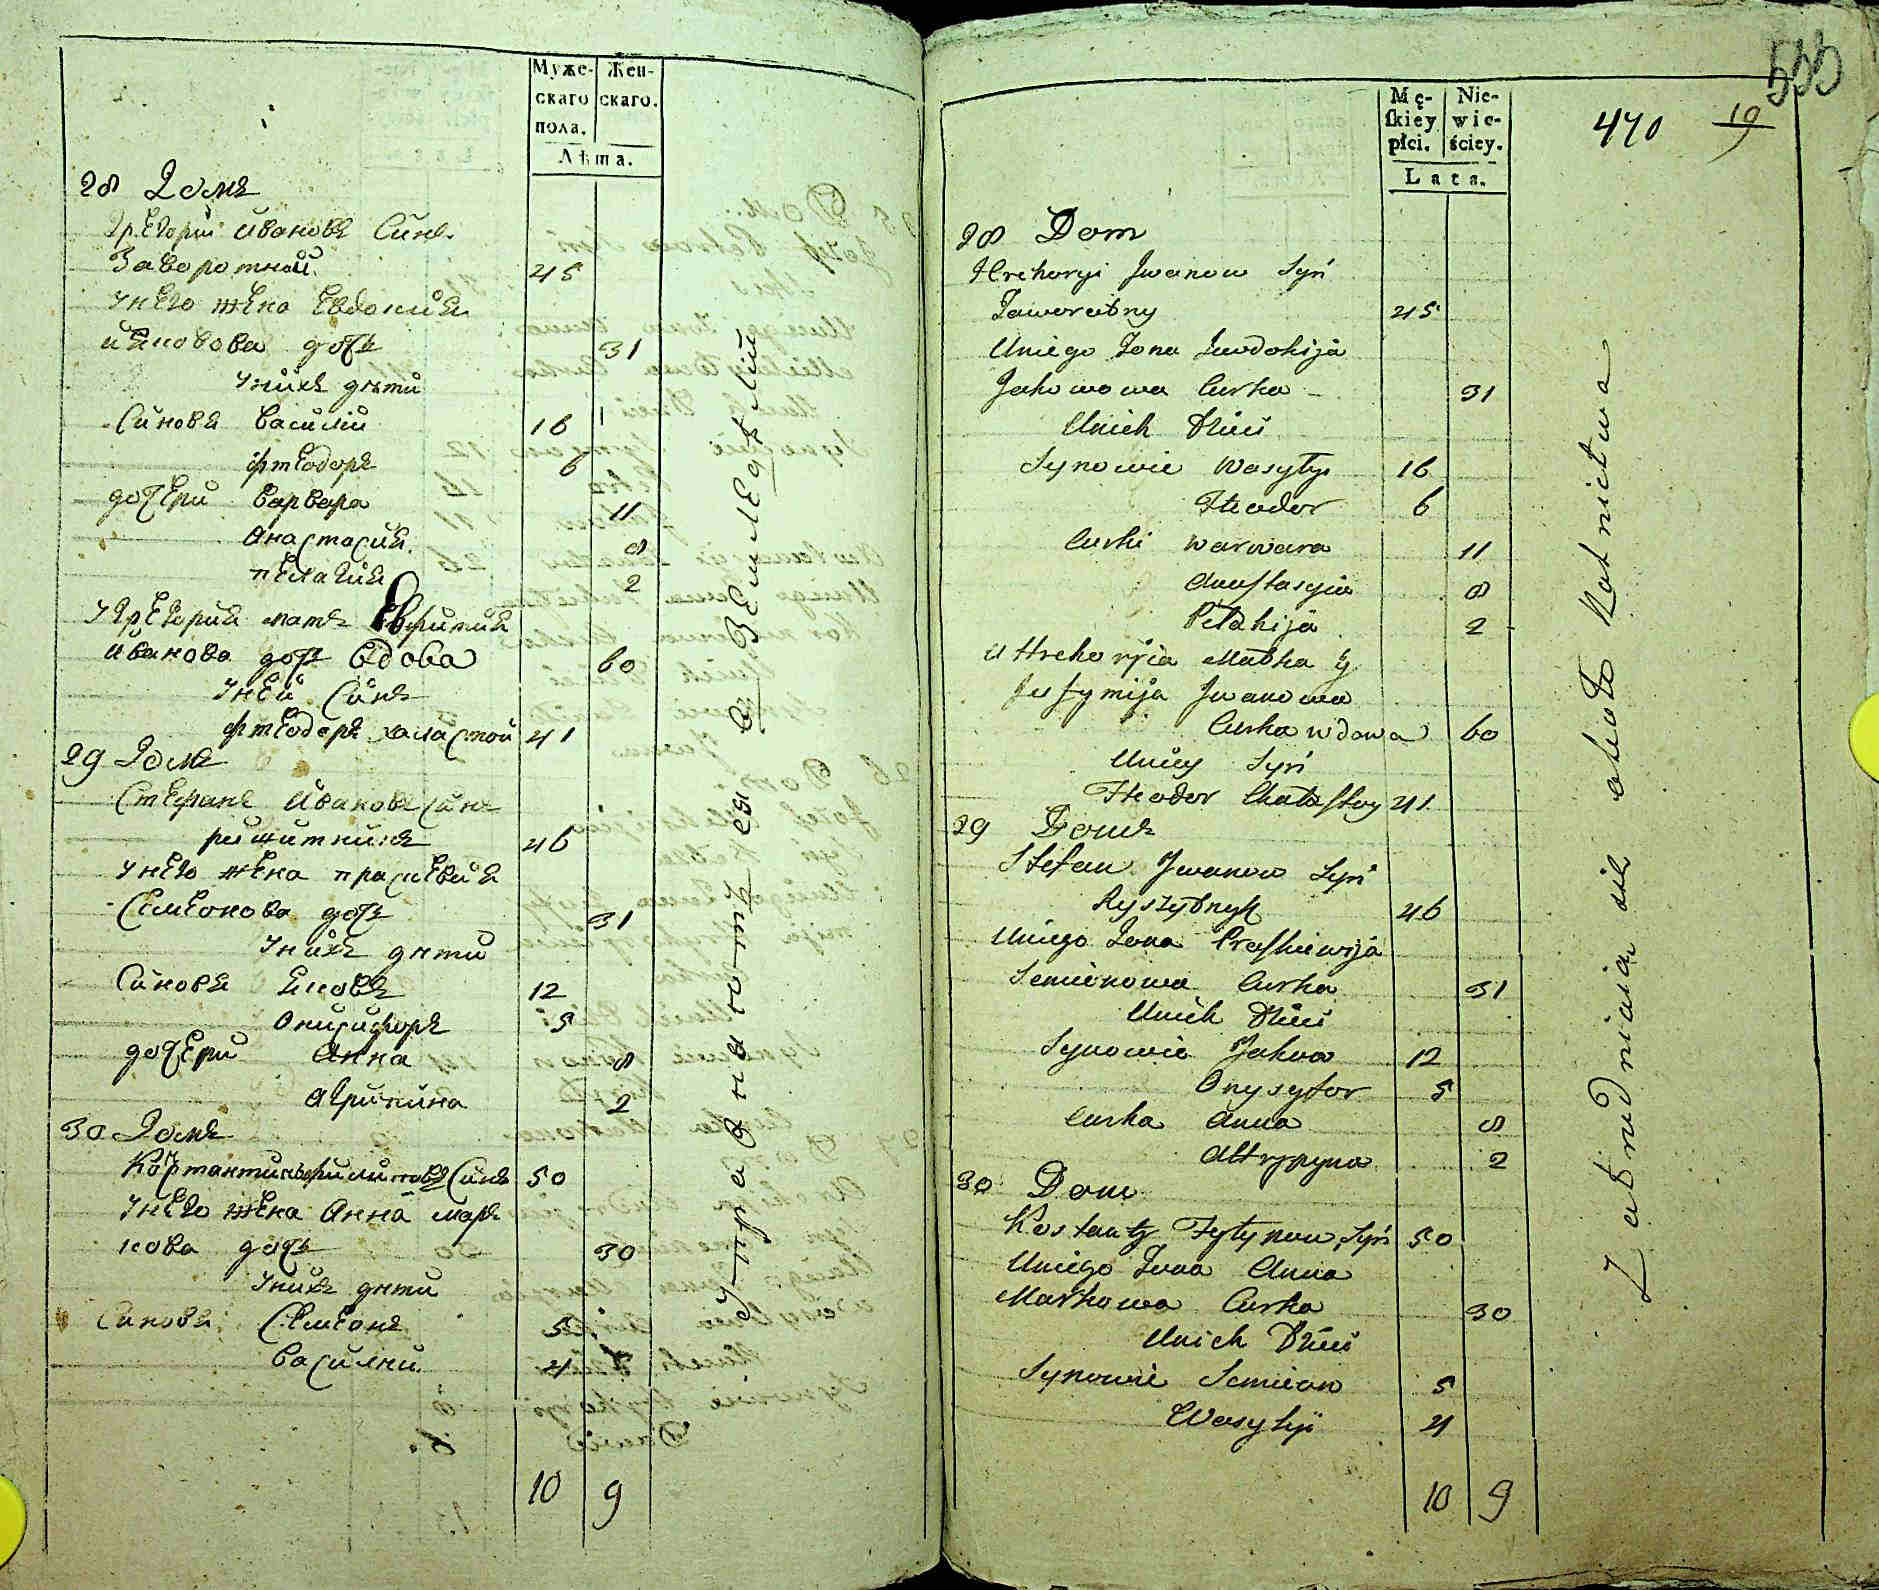 Муже-
скаго
пола.
Жен-
скаго.
Лѣта.
28 Домъ
Григорий Ивановъ Синъ
Заворотний 45
У него жена Евдокия
Яковова дочь 31
У нихъ дѣти
Синовя Василий 16
Фтеодоръ 6
дочери Варвара 11
Анастасия 8
Пелагия 2
У Григория мать Евфимия
Иванова дочь вдова 60
У неи Синъ
Фтеодоръ халастой 41
29 Домъ
Стефанъ Ивановъ Синъ
ришитникъ 46
У него жена праскевия
Семионова дочь 31
У нихъ дѣти
Синовя Яковъ 12
Онисифоръ 5
дочери Анна 8
Агрипина 2
30 Домъ
Костантинъ Филиповъ Синъ 50
У него жена Анна марк
кова дочь 30
У нихъ дѣти
Синовя Семионъ 5
Василий 4
10 9
Упражняются в земледелии
555
470 19
Mę-
ſkiey
płci.
Nie-
wie-
ściey.
Lata.
28 Dom
Hrehoryi Jwanow Syń
Zaworotny 45
Uniego Zona Jewdokija
Jakowowa Curka 31
Unich Dzieci
Synowie Wasyly 16
Fteodor 6
Curki Warwara 11
Anastasyia 8
Pelahija 2
U Hrehoryia Matka
Jefymija Jwanowa
Curka wdowa 60
Uniey Syń
Fteodor Chałaſtoy 41
29 Domъ
Stefan Jwanow Syń
Ryszytnyk 46
Uniego Zona Praskiewija
Semionowa Curka 31
Unich Dzieci
Synowie Jakow 12
Onysyfor 5
Curka Anna 8
Ahrypyna 2
30 Dom
Kostanty Fylypow Syń 50
Uniego Zona Anna
Markowa Curka 30
Unich Dzieci
Synowie Semion 5
Wasylyi 4
10 9
Zatrudniaia sie około Rolnictwa